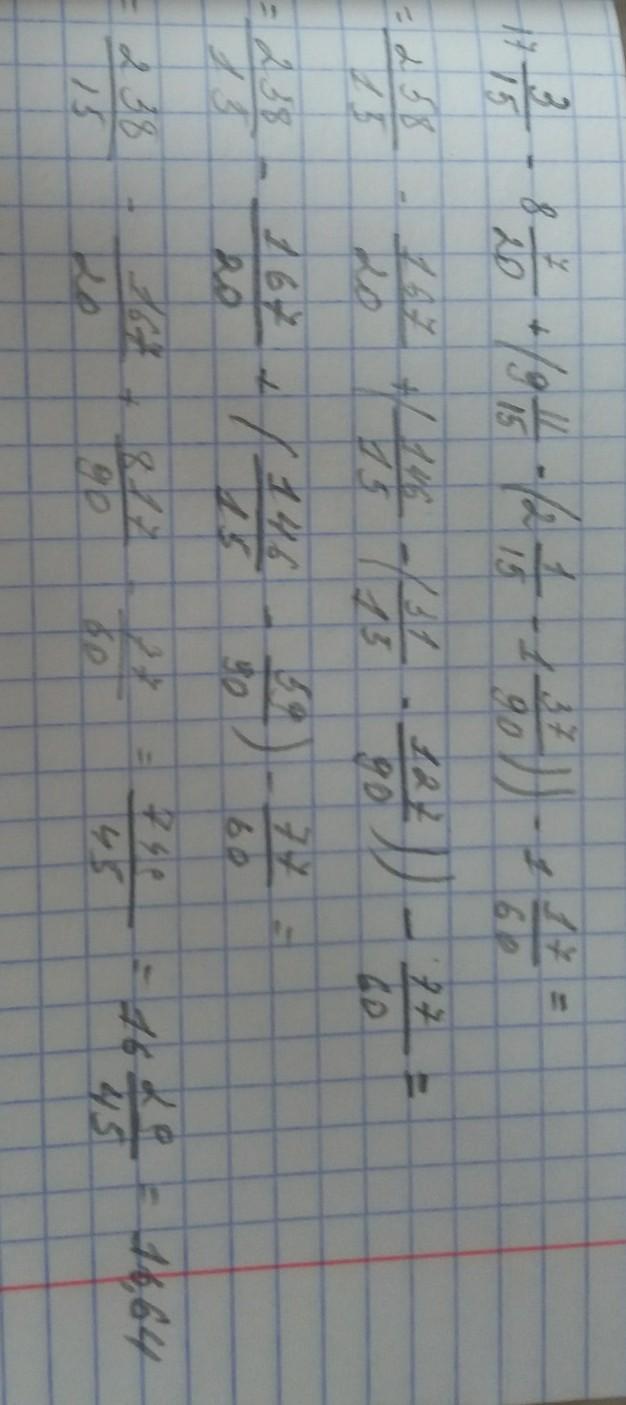 17 3/15 - 8 7/20 + (9 11/15 - (2 1/15 - 1 37/90)) - 1 17/60 =
= 258/15 - 167/20 + (146/15 - (31/15 - 127/90)) - 77/60 =
= 258/15 - 167/20 + (146/15 - 59/90) - 77/60 =
= 258/15 - 167/20 + 817/90 - 77/60 = 749/45 = 16 29/45 = 16,64